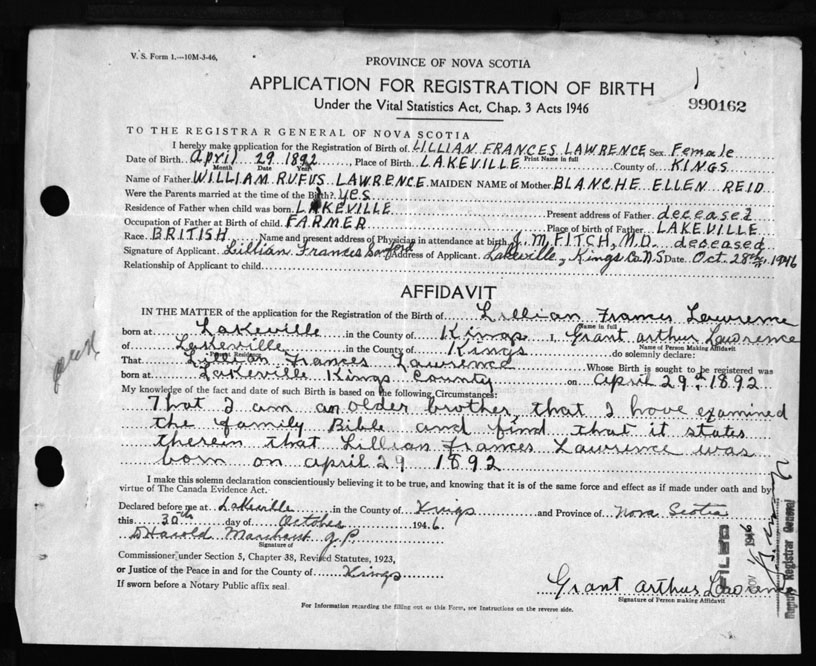 V. S. Form 1.—10M-3-46.
PROVINCE OF NOVA SCOTIA
APPLICATION FOR REGISTRATION OF BIRTH
Under the Vital Statistics Act, Chap. 3 Acts 1946
990162
TO THE REGISTRAR GENERAL OF NOVA SCOTIA
I hereby make application for the Registration of Birth of LILLIAN FRANCES LAWRENCE Sex Female
Print Name in full
Date of Birth April 29 1892, Place of Birth LAKEVILLE County of KINGS
Month Date Year
Name of Father WILLIAM RUFUS LAWRENCE MAIDEN NAME of Mother BLANCHE ELLEN REID
Were the Parents married at time of the Birth? yes
Residence of Father when child was born LAKEVILLE Present address of Father deceased
Occupation of Father at Birth of child FARMER Place of birth of Father LAKEVILLE
Race BRITISH Name and present address of Physician in attendance at birth J. M. FITCH, M.D. deceased
Signature of Applicant Lillian Frances Sanford Address of Applicant Lakeville, Kings Co N.S Date Oct. 28th, 1946
Relationship of Applicant to child
AFFIDAVIT
IN THE MATTER of the application for the Registration of the Birth of Lillian Frances Lawrence
Name in full
born at Lakeville in the County of Kings I, Grant Arthur Lawrence
Name of Person Making Affidavit
of Lakeville in the County of Kings do solemnly declare:
That Lillian Frances Lawrence Whose Birth is sought to be registered was
born at Lakeville Kings County on April 29 - 1892
My knowledge of the fact and date of such Birth is based on the following Circumstances:
That I am an older brother, that I have examined
the family Bible and find that it states
therein that Lillian Frances Lawrence was
born on april 29 1892
I make this solemn declaration conscientiously believing it to be true, and knowing that it is of the same force and effect as if made under oath and by
virtue of The Canada Evidence Act.
Declared before me at Lakeville in the County of Kings and Province of Nova Scotia
this 30th day of October 1946.
Harold Marchant J.P.
Signature of
Commissioner under Section 5, Chapter 38, Revised Statutes, 1923,
or Justice of the Peace in and for the County of Kings
If sworn before a Notary Public affix seal.
Grant Arthur Lawrence
Signature of Person making Affidavit
For Information regarding the filling out of this Form, see Instructions on the reverse side.
FILED
NOV 1946
Deputy Registrar General